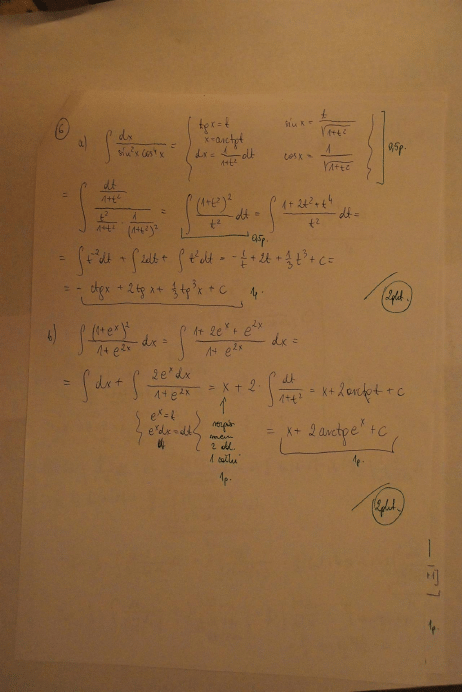 6
a) ∫ dx / sin²x cos⁴x = { tg x = t
x = arctg t
dx = 1/(1+t²) dt
sin x = t/√(1+t²)
cos x = 1/√(1+t²) } 0,5p.
= ∫ (dt/(1+t²)) / (t²/(1+t²) · 1/(1+t²)²) = ∫ (1+t²)²/t² dt = ∫ (1+2t²+t⁴)/t² dt =
0,5p.
= ∫ t⁻² dt + ∫ 2dt + ∫ t² dt = -1/t + 2t + 1/3 t³ + c =
= - ctg x + 2 tg x + 1/3 tg³x + c 1p.
b) ∫ (1+eˣ)²/(1+e²ˣ) dx = ∫ (1+2eˣ+e²ˣ)/(1+e²ˣ) dx =
= ∫ dx + ∫ 2eˣdx/(1+e²ˣ) = x + 2 · ∫ dt/(1+t²) = x + 2 arctg t + c
{ eˣ = t
eˣdx = dt }
1p.
= x + 2 arctg eˣ + c
1p.
1p.